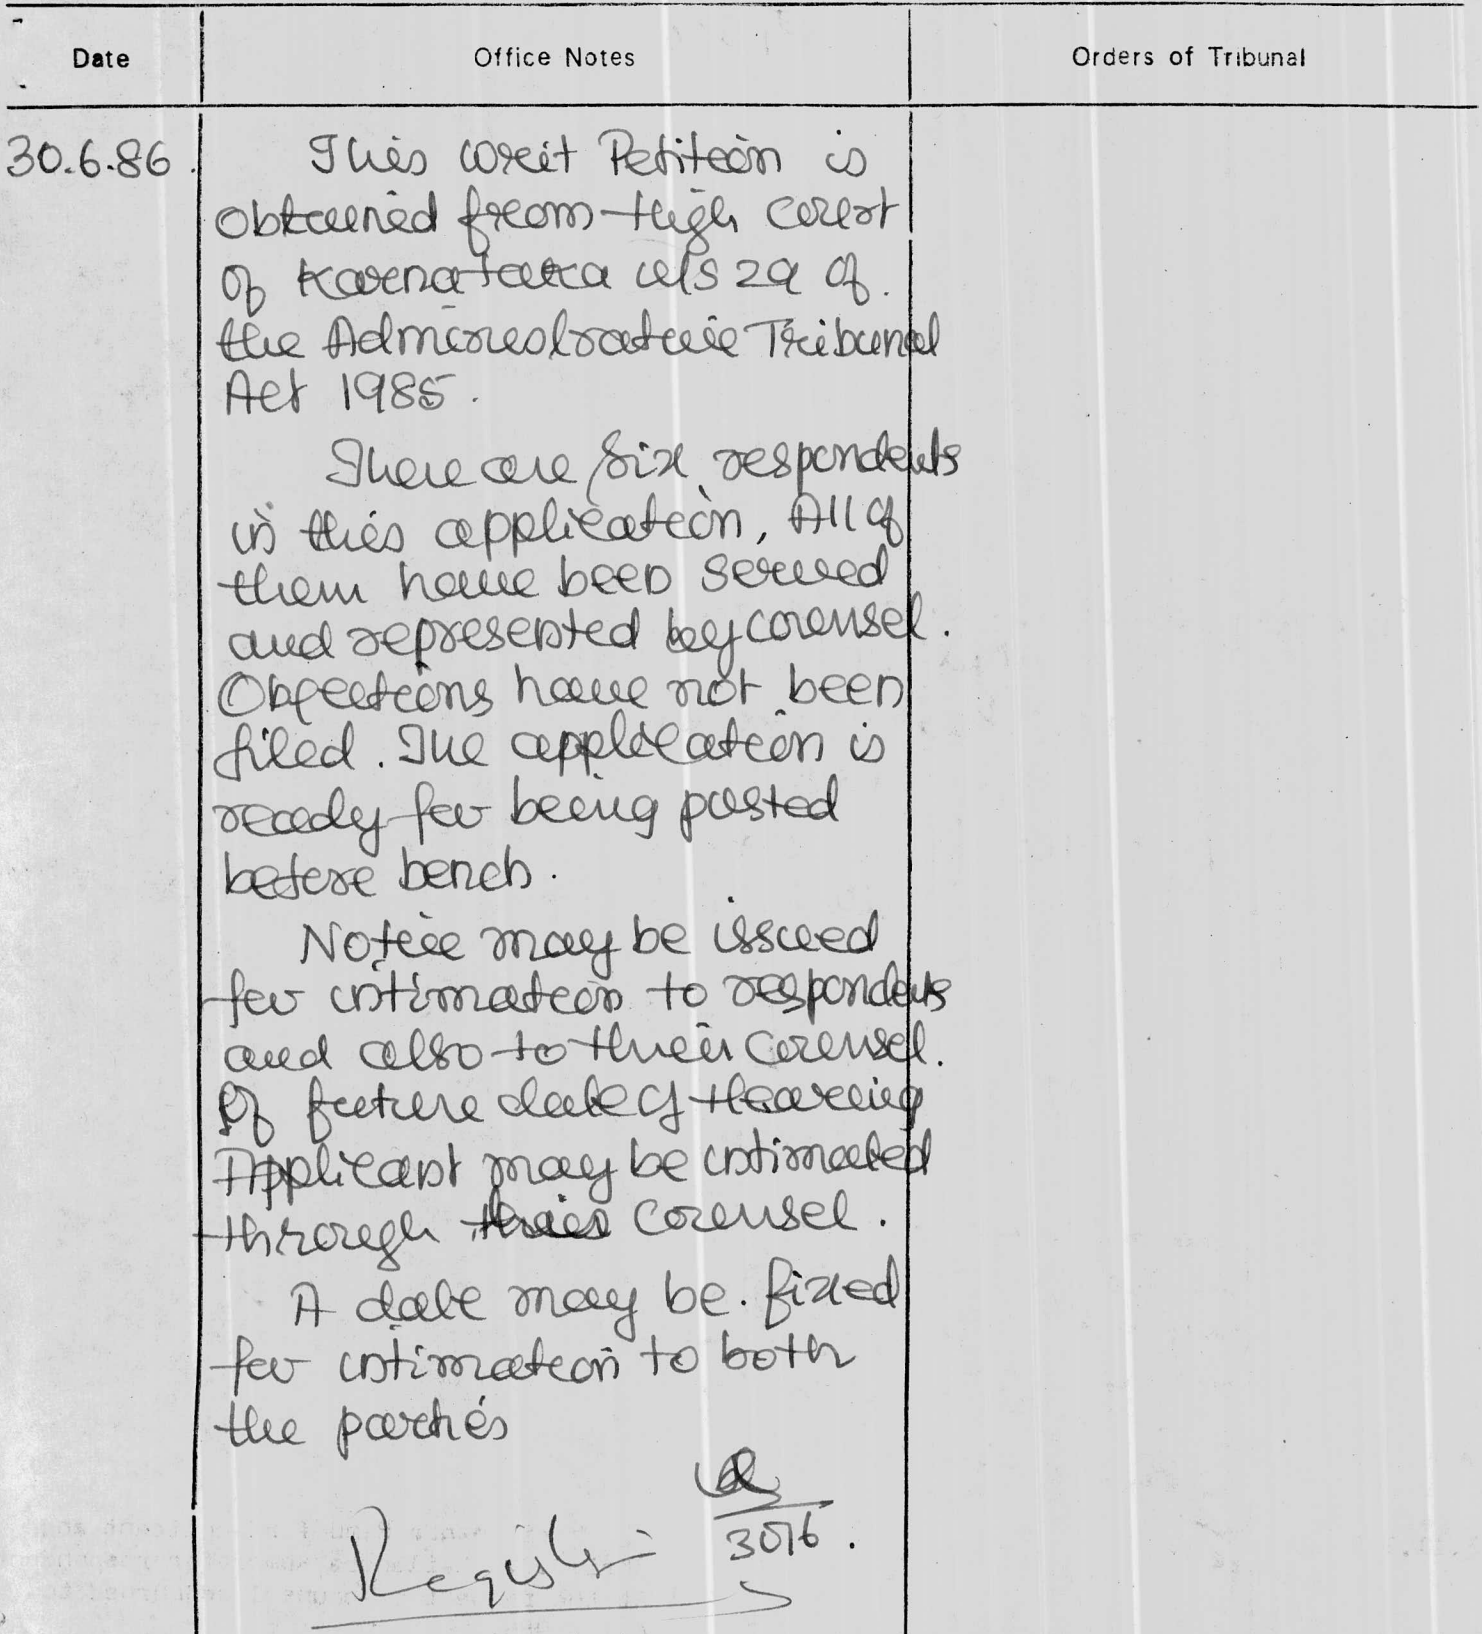 Date Office Notes Orders of Tribunal
30.6.86. This Writ Petition is
Obtained from High Court
Of Karnataka u/s 29 of.
the Administrative Tribunal
Act 1985.
There are six respondents
in this application, All of
them have been served
and represented by counsel.
Objections have not been
filed. The application is
ready for being posted
before bench.
Notice may be issued
for intimation to respondents
and also to their counsel.
Of future date of Hearing
Applicant may be intimated
through their counsel.
A date may be. fixed
for intimation to both
the parties
30/6.
Registrar